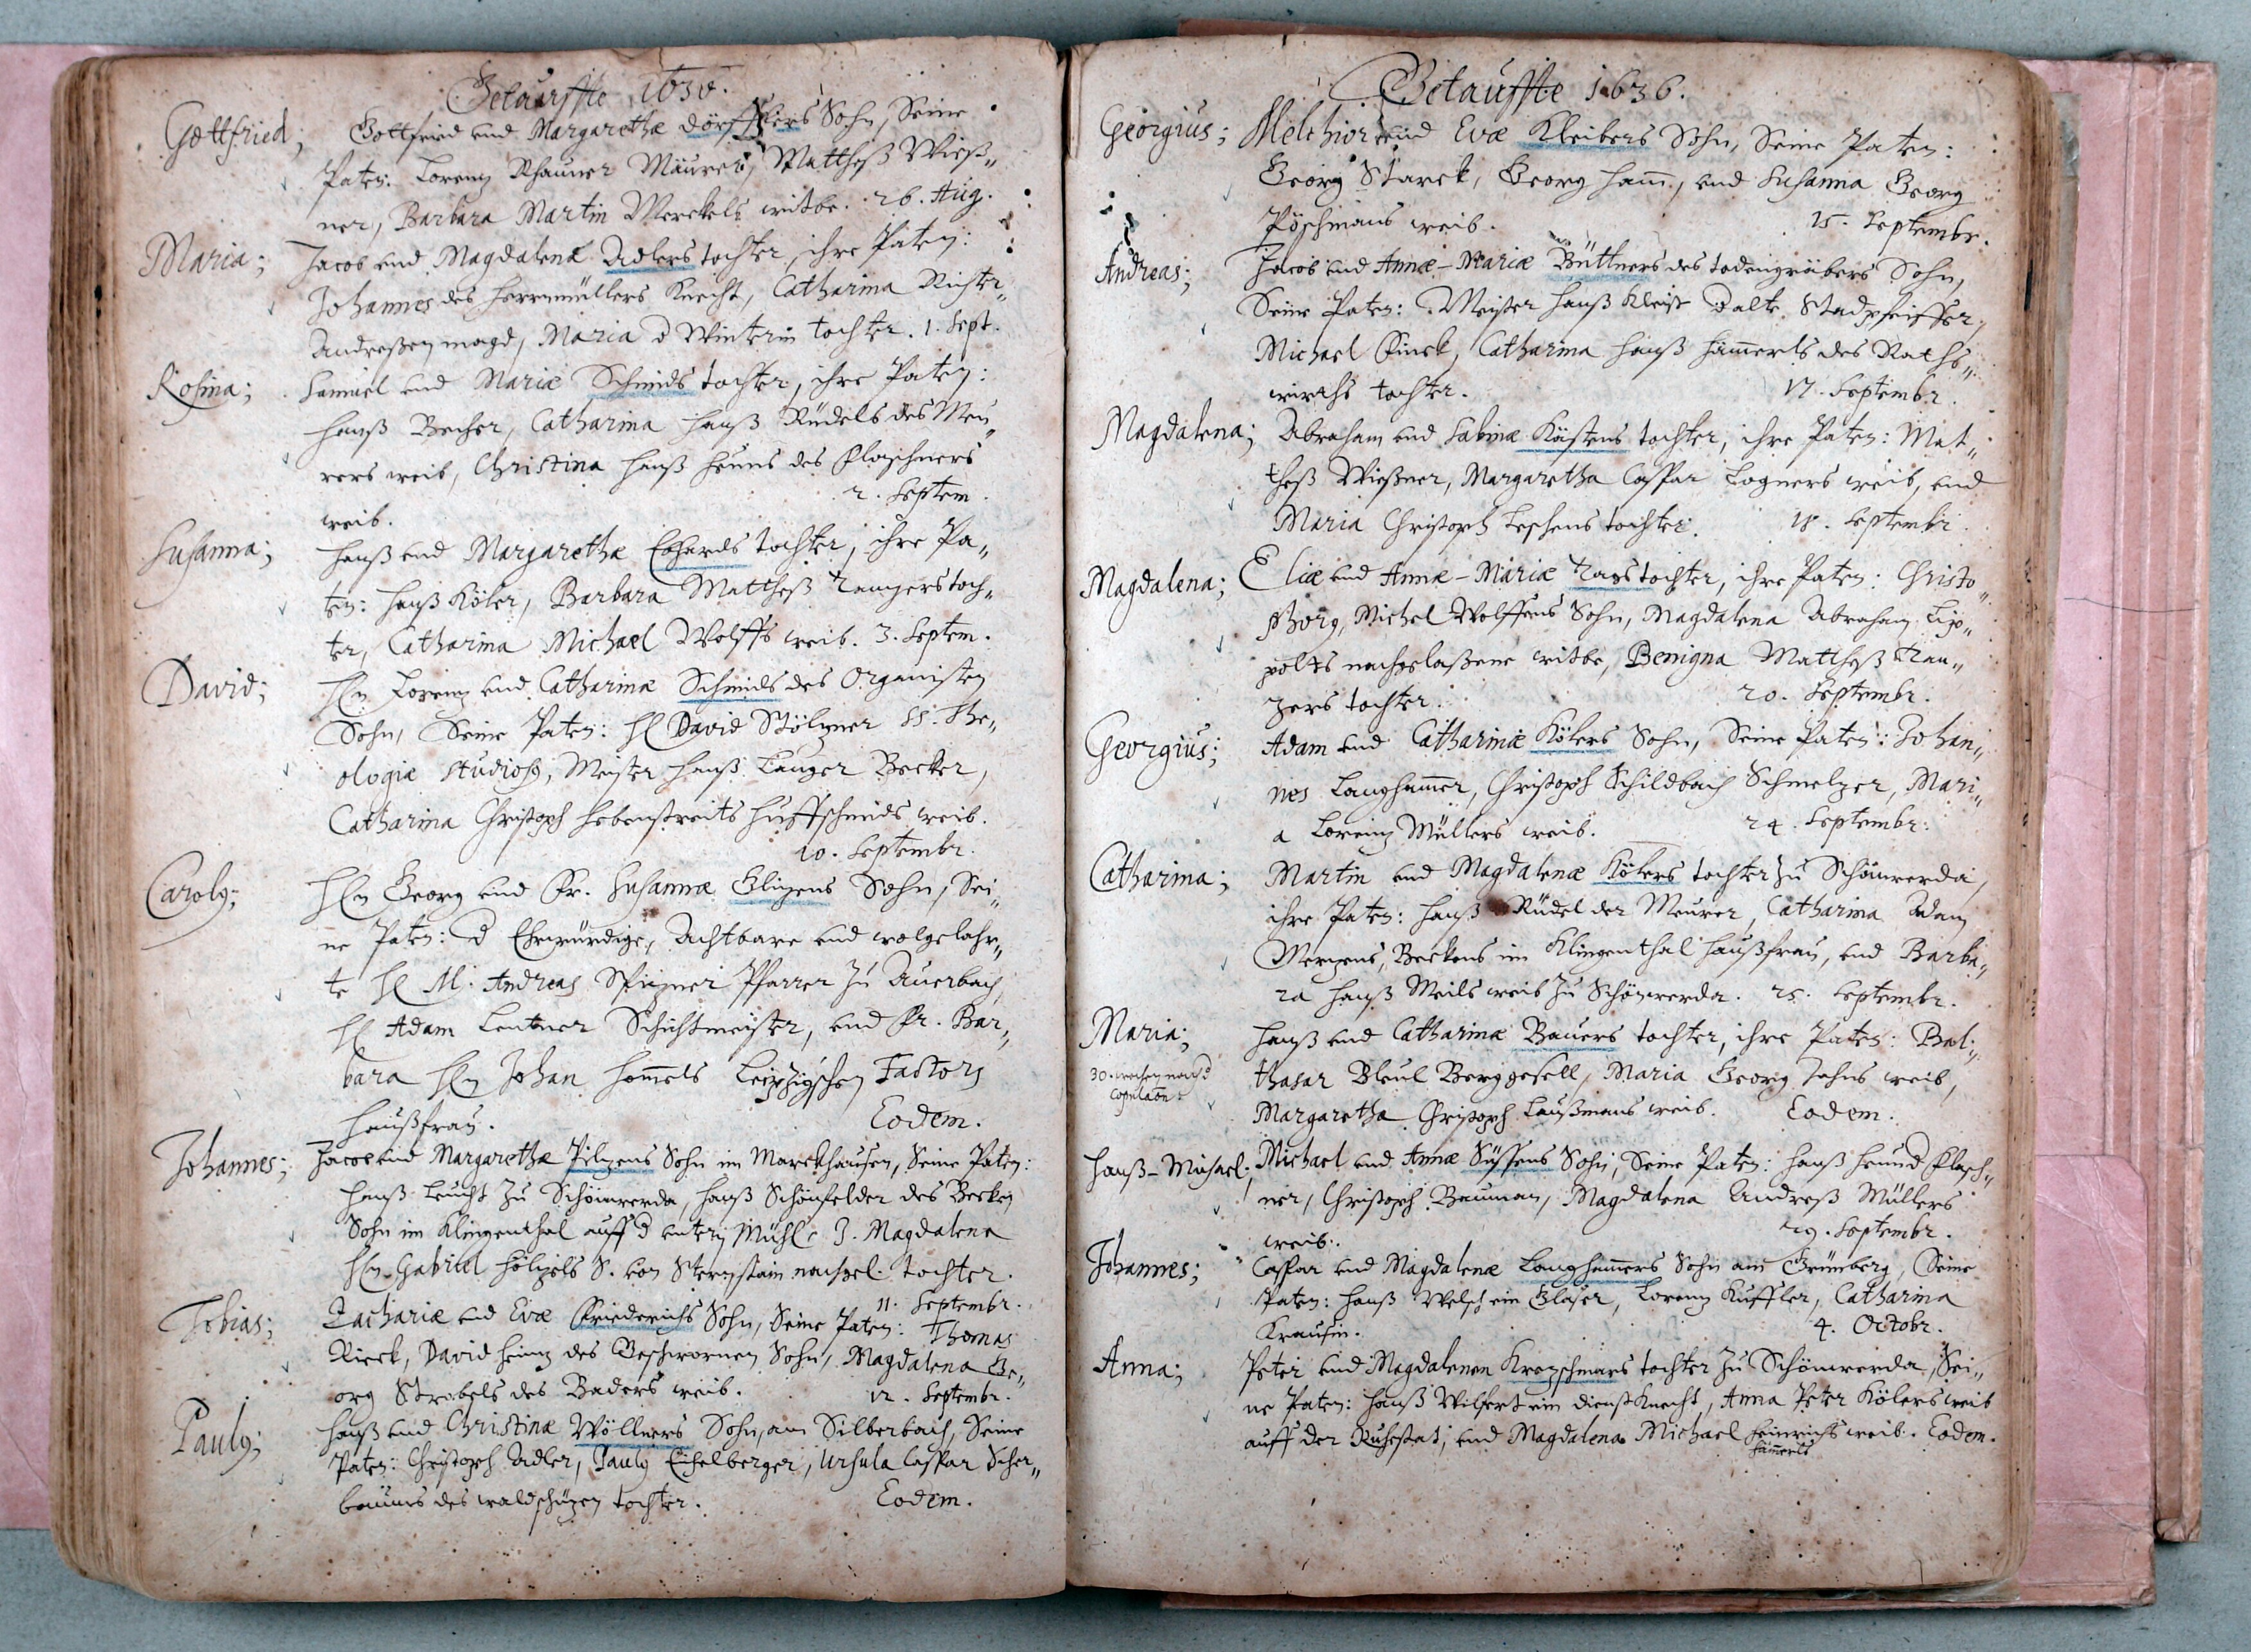 Getauffte 1636.
Gottfried; Gottfried vnd Margarethæ Dörfflers Sohn, Seine
Paten: Lorentz Rhauner Mäurer, Mattheß Wieß„
ner, Barbara Martin Merckels witbe. 26. Aug.
Maria; Jacob vnd Magdalenæ Adlers tochter, ihre Paten:
Johannes des Herrnmüllers Knecht, Catharina Richter„
Andreßen magd, Maria d Winterin tochter. 1. Sept.
Rosina; Samuel vnd Mariæ Schmids tochter, ihre Paten:
Hanß Becher, Catharina Hanß Rüdels des Meu„
rers weib, Christina Hanß Heuns des Flaschners
weib. 2. Septem.
Susanna; Hanß vnd Margarethæ Ebhards tochter, ihre Pa„
ten: Hanß Köler, Barbara Mattheß Rangers toch„
ter, Catharina Michael Wolffs weib. 3. Septem.
David; Hn Lorentz vnd Catharinæ Schmids des Organisten
Sohn, Seine Paten: H David Stöltzner SS. The„
ologiæ studiosq, Meister Hanß Langer Becker,
Catharina Christoph Hebenstreits Huffschmids weib.
10. Septembr.
Carolq; Hn Georg vnd Fr. Susannæ Glitzens Sohn, Sei„
ne Paten: d Ehrwürdige, Achtbare vnd wolgelahr„
te H M. Andreas Spitzner Pfarrer zu Auerbach,
H Adam Lentner Schichtmeister, vnd Fr. Bar„
bara Hn Johan Hommels Leipzigschen Factors
Haußfrau. Eodem.
Johannes; Jacob vnd Margarethæ Piltzens Sohn im Marckhausen, Seine Paten:
Hanß Leucht zu Schönwerda, Hanß Schönfelder des Becken
Sohn im Klingenthal auff d vntern Mühl, J. Magdalena
Hn Gabriel Höltzels S. von Sternstain nachgel. tochter.
11. Septembr.
Tobias; Zachariæ vnd Evæ Friederichs Sohn, Seine Paten: Thomas
Rieck, David Heintz des Geschwornen Sohn, Magdalena Ge„
org Strobels des Baders weib. 12. Septembr.
Paulq; Hanß vnd Christinæ Wöllners Sohn, am Silberbach, Seine
Paten: Christoph Adler, Paulq Eichelberger, Ursula Caspar Scher„
baums des waldschützen tochter. Eodem.
Getauffte 1636.
Georgius; Melchior vnd Evæ Kleibers Sohn, Seine Paten:
Georg Starck, Georg Ham̄, vnd Susanna Georg
Pöschmans weib. 15. Septembr.
Andreas; Jacob vnd Annæ-Mariæ Büttners des todengräbers Sohn,
Seine Paten: Meister Hanß Kleist d alte Stadpfeiffer,
Michael Finck, Catharina Hanß Häm̄erls des Raths„
wirths tochter. 17. Septembr.
Magdalena; Abraham vnd Sabinæ Kästens tochter, ihre Paten: Mat„
theß Wießner, Margaretha Caspar Wagners weib, vnd
Maria Christoph Leschens tochter. 18. Septembr.
Magdalena; Eliæ vnd Annæ-Mariæ tochter, ihre Paten: Christo„
Michel Wolffens Sohn, Magdalena Abraham Lip„
polts nachgelaßene witbe, Benigna Mattheß Ran„
gers tochter. 20. Septembr.
Georgius; Adam vnd Catharinæ Kölers Sohn, Seine Paten: Johan„
nes Langham̄er, Christoph Schildbach Schmeltzer, Mari„
a Lorentz Müllers weib. 24. Septembr.
Catharina; Martin vnd Magdalenæ Kölers tochter zu Schönwerda,
ihre Paten: Hanß Rüdel der Meurer, Catharina Adam
Mertzens, Beckens im Klingenthal Haußfrau, vnd Barba„
ra Hanß Meils weib zu Schönwerda. 25. Septembr.
Maria; Hanß vnd Catharinæ Bauers tochter, ihre Paten: Bal„
30. wochen nach d thasar Bleul Berggesell, Maria Georg Jahns weib,
Copulaōn. Margaretha Christoph Laußmans weib. Eodem.
Hanß-Michael; Michael vnd Annæ Süssens Sohn, Seine Paten: Hanß Heun d Flasch„
ner, Christoph Bauman, Magdalena Andreß Müllers
weib. 29. Septembr.
Johannes; Caspar vnd Magdalenæ Langham̄ers Sohn am Grünberg, Seine
Paten: Hanß Welsch ein Glaser, Lorentz Kuffler, Catharina
Krausin. 4. Octobr.
Anna; Peter vnd Magdalenen Kretzschmars tochter zu Schönwerda, Sei„
ne Paten: Hanß Wilfert ein dienstKnecht, Anna Peter Kölers weib
auff der Ruhestat, vnd Magdalena Michael Heinrichs weib. Eodem.
Häm̄erls